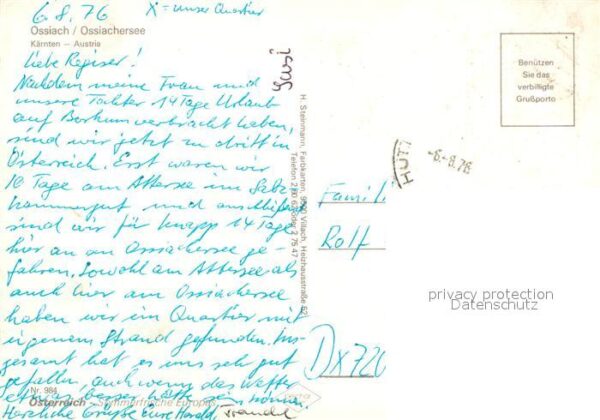 6.8.76 X = unser Quartier
Ossiach / Ossiachersee
Kärnten – Austria
liebe Regiser!
Nachdem meine Frau und
unsere Tochter 14 Tage Urlaub
auf Borkum verbracht haben,
sind wir jetzt zu dritt in
Österreich. Erst waren wir
10 Tage am Attersee im Salz
kammergut und anschließend
sind wir für knapp 14 Tage
hier an den Ossiachersee ge-
fahren. Sowohl am Attersee als
auch hier am Ossiachersee
haben wir ein Quartier mit
eigenem Strand gefunden. Ins-
gesamt hat es uns sehr gut
gefallen, auch wenn das Wetter
etwas besser hätte
Nr. 984
Österreich - Sommerfrische Europas
Herzliche Grüße Eure Harald,
Susi
H. Steinmann, Farbkarten, 9500 Villach, Heizhausstraße 62
Benützen
Sie das
verbilligte
Grußporto
HUTT
-6.-8.76
Famili
Rolf
privacy protection
Datenschutz
Dx720